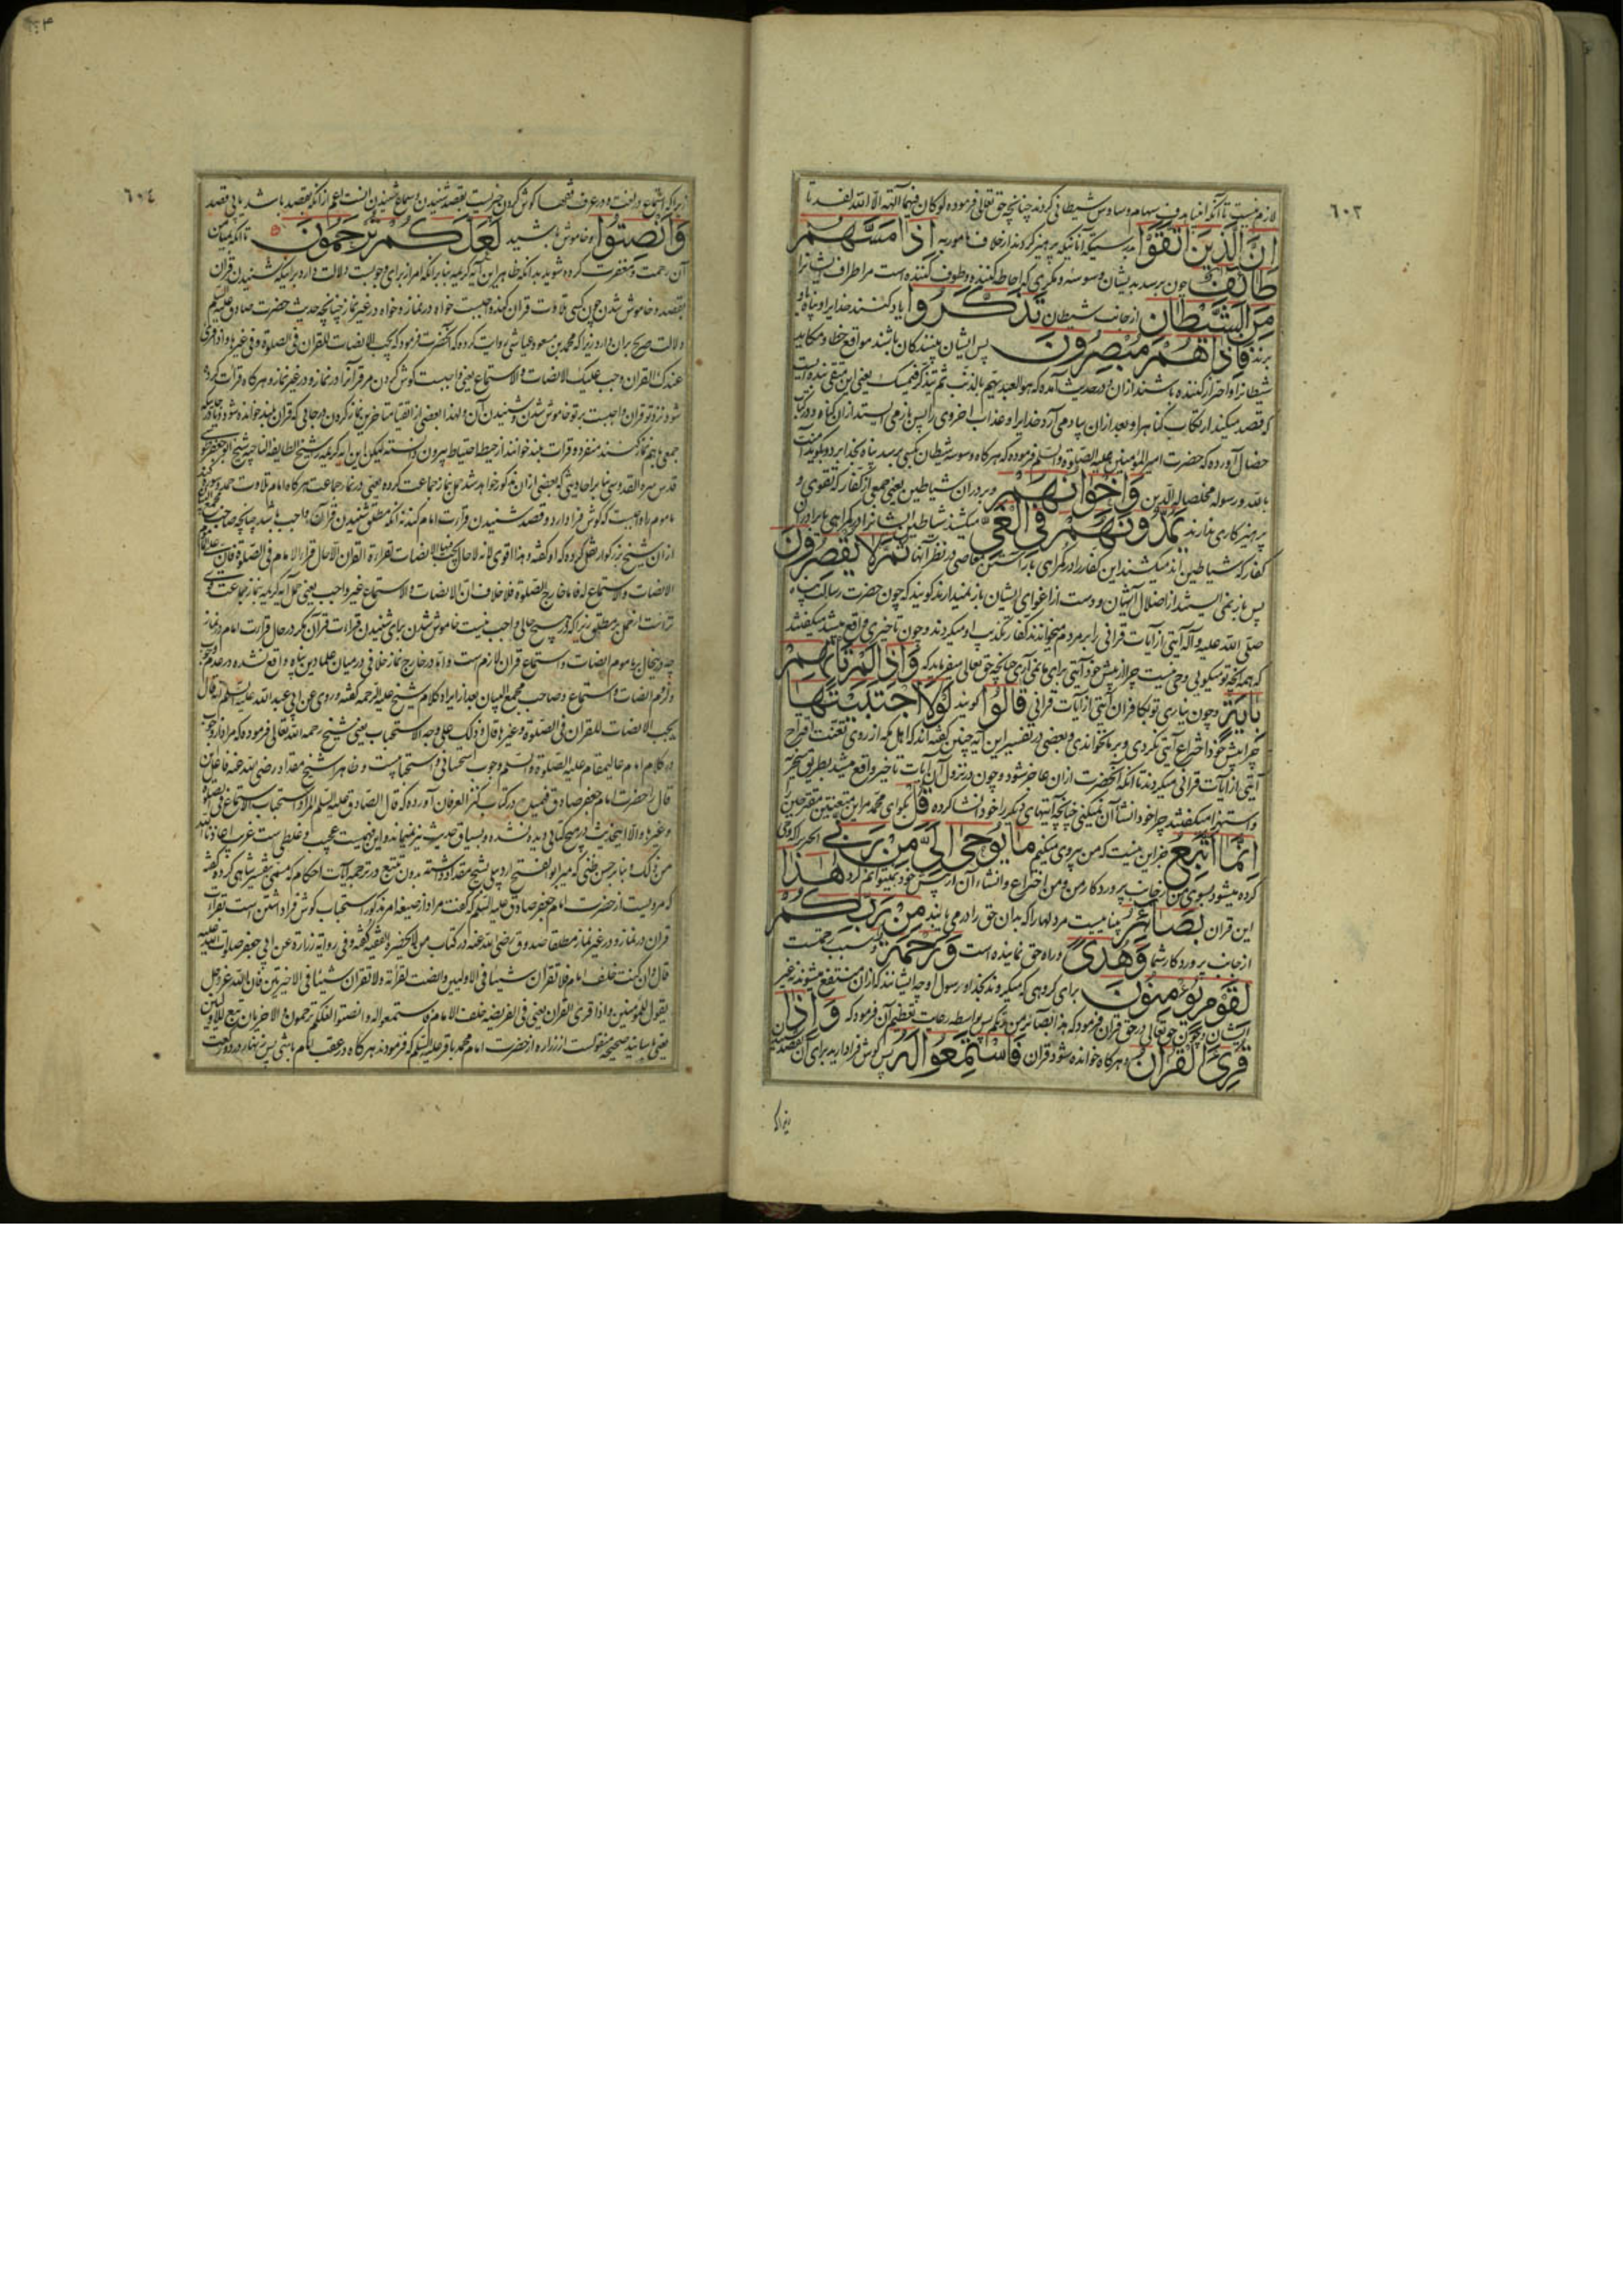 ٦٠٣
لازم نیست تا آنکه انبیا هدف سهام وساوس شیطانی گردند چنانچه حق تعالی فرموده لو کان فیهما آلهة الا الله لفسدتا
اِنَّ الَّذینَ اتَّقَوْا بدرستیکه آنانیکه پرهیز کردند از خلاف مامور به اِذا مَسَّهُمْ
طائِفٌ چون برسد بدیشان وسوسه و مکری که احاطه کننده و طوف کننده است مر اطراف ایشانرا
مِنَ الشَّیْطانِ از جانب شیطان تَذَکَّرُوا یاد کنند خدایرا و پناه باو
برند فَاِذا هُمْ مُبْصِرُونَ پس ایشان بینندگان باشند مواقع خطا و مکاید
شیطانرا و احتراز کننده باشند از آن و در حدیث آمده که هو العبد یهم بالذنب ثم یتذکر فیمسک یعنی این متقی بنده ایست
که قصد میکند ارتکاب گناهرا و بعد از آن بیاد می آرد خدایرا و عذاب اخروی را پس باز می ایستد از آن گناه و در کتاب
خصال آورده که حضرت امیر المؤمنین علیه الصلوة والسلم فرموده که هرگاه وسوسه شیطان بکسی برسد پناه بخدا برد و بگوید آمنت
بالله و رسوله مخلصا له الدین وَاِخْوانُهُمْ و برادران شیاطین یعنی جمعی از کفار که تقوی و
پرهیزکاری ندارند یَمُدُّونَهُمْ فِی الْغَیِّ میکشند شیاطین ایشانرا در گمراهی یا برادران
کفار که شیاطین اند میکشند این کفار را در گمراهی بآراستن معاصی در نظر آنها ثُمَّ لا یُقْصِرُونَ
پس باز نمی ایستند از اضلال ایشان و دست از اغوای ایشان باز نمیدارند گویند که چون حضرت رسالت پناه
صلی الله علیه و آله آیتی از آیات قرآنی را بر مردم میخواندند کفار تکذیب او میکردند و چون تاخیری واقع میشد میگفتند
که همه آنچه تو میگویی وحی نیست چرا از پیش خود آیتی برای ما نمی آری چنانچه حق تعالی میفرماید که وَاِذا لَمْ تَأْتِهِمْ
بِایَةٍ و چون نیاری تو بکافران آیتی از آیات قرآنی قالُوا گویند لَوْلَا اجْتَبَیْتَها
چرا پیش خود اختراع آیتی نکردی و بر ما نخواندی و بعضی در تفسیر این آیه چنین گفته اند که اهل مکه از روی تعنت اقتراح
آیتی از آیات قرآنی میکردند تا آنکه آنحضرت از آن عاجز شود و چون در نزول آن آیات تاخیر واقع میشد بطریق سخریه
و استهزا میگفتند چرا خود انشا آن نمیکنی چنانچه آیتهای دیگر را خود انشا کرده قُلْ بگو ای محمد مر این متعنتین مقترحین را
اِنَّما اَتَّبِعُ جز این نیست که من پیروی میکنم ما یُوحی اِلَیَّ مِنْ رَبّی آنچیز را که وحی
کرده میشود بسوی من از جانب پروردگار من و من اختراع و انشاء آن از پیش خود نمیتوانم کرد هذا
این قرآن بَصائِرُ بیناییست مر دلها را که بدان حق را در می یابند مِنْ رَبِّکُمْ
از جانب پروردگار شما وَهُدیً و راه حق نماینده است وَرَحْمَةٌ و سبب رحمت
لِقَوْمٍ یُؤْمِنُونَ برای گروهی که میگروند بخدا و رسول او چه ایشانند که از آن منتفع میشوند نه غیر
ایشان و چون حق تعالی در حق قرآن فرمود که هذا بصائر من ربکم پس بواسطه رعایت تعظیم آن فرمود که وَاِذا
قُرِئَ الْقُرْانُ و هرگاه خوانده شود قرآن فَاسْتَمِعُوا لَهُ پس گوش فرا دارید برای آن بقصد شنیدن
زیراکه
٦٠٤
زیرا که استماع در لغت و در عرف فقها گوش کردن چیزیست بقصد شنیدن و سماع شنیدن است اعم از آنکه بقصد باشد یا بی قصد
وَاَنْصِتُوا و خاموش باشید لَعَلَّکُمْ تُرْحَمُونَ تا آنکه بمیامن
آن رحمت و مغفرت کرده شوید بدانکه ظاهر این آیه کریمه بنا بر آنکه امر از برای وجوبست دلالت دارد بر اینکه شنیدن قرآن
بقصد و خاموش شدن چون کسی تلاوت قرآن کند واجبست خواه در نماز و خواه در غیر نماز چنانچه حدیث حضرت صادق علیه السلم
دلالت صریح بر آن دارد زیرا که محمد بن مسعود عیاشی روایت کرده که آنحضرت فرمود که یجب الانصات للقرآن فی الصلوة و فی غیرها و اذا قرئ
عندک القرآن وجب علیک الانصات و الاستماع یعنی واجبست گوش کردن مر قرآنرا در نماز و در غیر نماز و هرگاه قرائت کرده
شود نزد تو قرآن واجبست بر تو خاموش شدن و شنیدن آن و لهذا بعضی از اتقیا متاخرین نماز کردن در جایی که قرآن بلند خوانده شود
جمعی با هم نماز کنند منفرد و قرائت بلند خوانند از حیطه احتیاط بیرون دانسته لیکن این آیه کریمه را شیخ الطایفه الناجیه شیخ ابو جعفر طوسی
قدس سره القدوسی بنا بر احادیثی که بعضی از آن مذکور خواهد شد حمل بر نماز جماعت کرده یعنی در نماز جماعت هرگاه امام تلاوت حمد و سوره کند
ماموم را واجبست که گوش فرا دارد و قصد شنیدن قرائت امام کند نه آنکه مطلق شنیدن قرآن واجب باشد چنانچه صاحب
از آن شیخ بزرگوار نقل کرده که او گفته و هذا اقوی لانه لا حال یجب فیها الانصات لقراءة القرآن الا حال قراءة الامام فی الصلوة فان
الانصات و الاستماع له فاما خارج الصلوة فلا خلاف ان الانصات و الاستماع غیر واجب یعنی حمل آیه کریمه بنماز جماعت
چه در هیچ حالی واجب نیست خاموش شدن برای شنیدن قراءت قرآن مگر در حال قرائت امام در نماز
و لزوم انصات و استماع و صاحب مجمع البیان بعد از ایراد کلام شیخ علیه الرحمه گفته و روی عن ابی عبد الله علیه السلم انه قال
یجب الانصات للقرآن فی الصلوة و غیرها قال و ذلک علی وجه الاستحباب یعنی شیخ رحمه الله تعالی فرموده که مراد از وجوب
در کلام امام عالیمقام علیه الصلوة و السلم وجوب استحسانی و استحبابیست و ظاهرا شیخ مقداد رضی الله عنه فاعل
قال را حضرت امام جعفر صادق فهمیده در کتاب کنز العرفان آورده که قال الصادق علیه السلم المراد استحباب الاستماع فی الصلوة
و غیرها و الا اینحدیث در هیچ کتابی دیده نشده و سیاق حدیث نیز نمینماید و این فهمیست عجیب و غلطی است غریب اعاذنا الله
من ذلک و بنا بر حسن ظنی که میر ابو الفتح اردبیلی بشیخ مقداد داشته بدون تتبع در ترجمه آیات احکام که مسمی بتفسیر شاهی کرده گفته
که مرویست از حضرت امام جعفر صادق علیه السلم که گفت مراد از صیغه امر مذکور استحباب گوش فرا داشتن است بقراءت
قرآن در نماز و در غیر نماز مطلقا صدوق رضی الله عنه در کتاب من لا یحضره الفقیه گفته و فی روایة زرارة عن ابی جعفر صلوات الله علیه
قال و ان کنت خلف امام فلا تقرأن شیئا فی الاولیین و انصت لقرائته و لا تقرأن شیئا فی الاخیرتین فان الله عز و جل
یقول للمؤمنین و اذا قرئ القرآن یعنی فی الفریضة خلف الامام فاستمعوا له و انصتوا لعلکم ترحمون و الاخریان تبع للاولیین
یعنی باسانید صحیحه منقولست از زراره از حضرت امام محمد باقر علیه السلم که فرمودند هرگاه در عقب امام باشی پس زنهار در دو رکعت